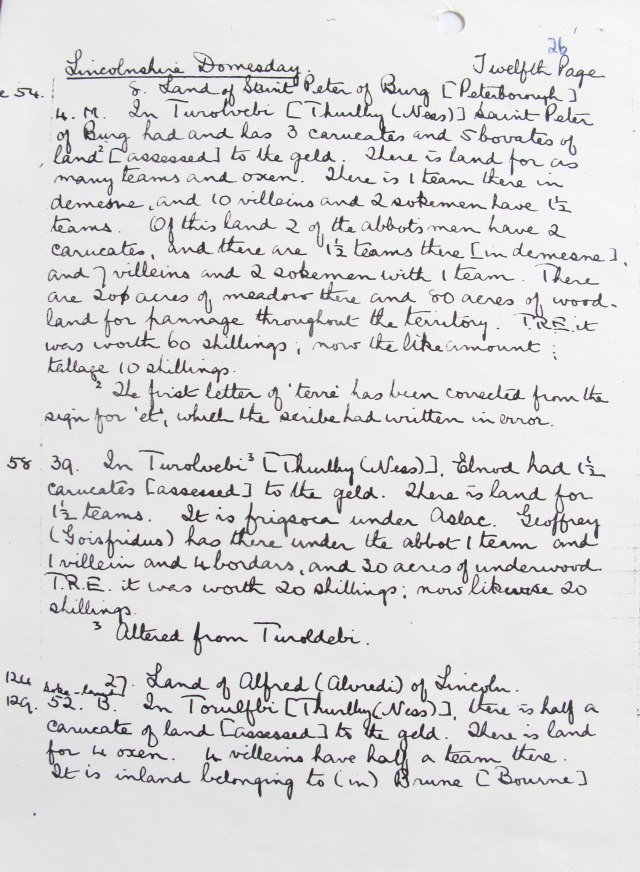 26
Lincolnshire Domesday. Twelfth Page
54. 8. Land of Saint Peter of Burg [Peterborough]
4. M. In Turolvebi [Thurlby (Ness)] Saint Peter
of Burg had and has 3 carucates and 5 bovates of
land² [assessed] to the geld. There is land for as
many teams and oxen. There is 1 team there in
demesne, and 10 villeins and 2 sokemen have 1½
teams. Of this land 2 of the abbot's men have 2
carucates, and there are 1½ teams there [in demesne],
and 7 villeins and 2 sokemen with 1 team. There
are acres of meadow there and 80 acres of wood-
land for pannage throughout the territory. T.R.E. it
was worth 60 shillings; now the like amount;
tallage 10 shillings.
² The first letter of 'terrę' has been corrected from the
sign for 'et', which the scribe had written in error.
58 39. In Turolvebi³ [Thurlby (Ness)], Elnod had 1½
carucates [assessed] to the geld. There is land for
1½ teams. It is frigsoca under Aslac. Geoffrey
(Goisfridus) has there under the abbot 1 team and
1 villein and 4 bordars, and 20 acres of underwood
T.R.E. it was worth 20 shillings; now likewise 20
shillings.
³ Altered from Turoldebi.
124 27. Land of Alfred (Alvredi) of Lincoln.
soke-land]
129. 52. B. In Torulfbi [Thurlby (Ness)], there is half a
carucate of land [assessed] to the geld. There is land
for 4 oxen. 4 villeins have half a team there.
It is inland belonging to (in) Brune [Bourne]